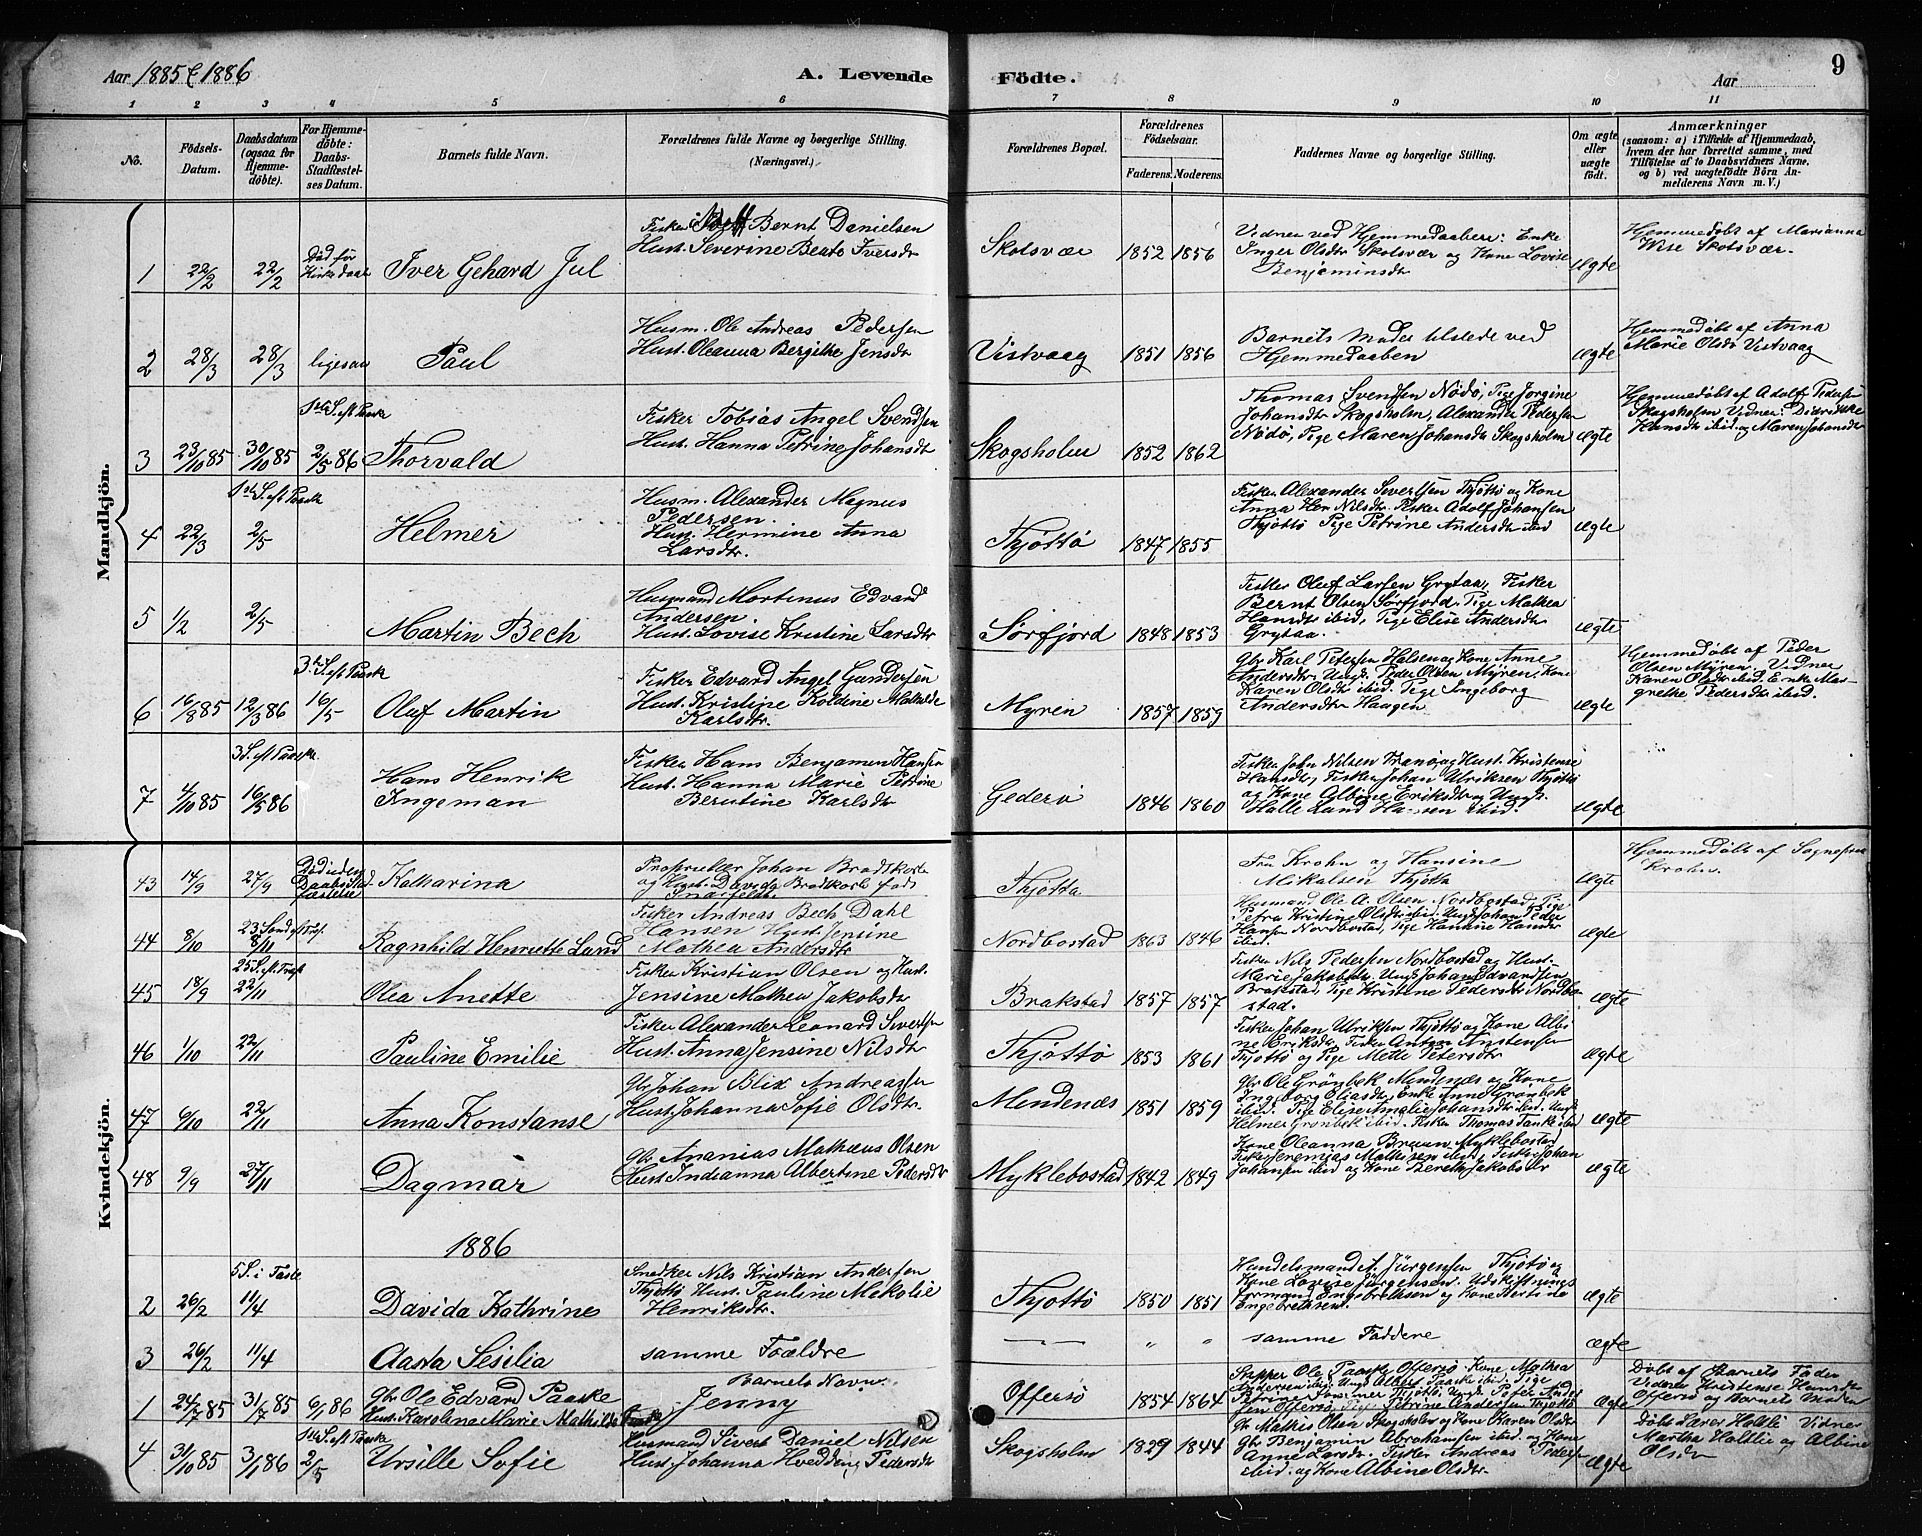 Aar 1885 & 1886
A. Levende Födte.
Aar
9
1 2 3 4 5 6 7 8 9 10 11
No.
Födsels-
Datum.
Daabsdatum
(ogsaa for
Hjemme-
döbte).
For Hjemme-
döbte:
Daabs-
Stadfæstel-
ses Datum.
Barnets fulde Navn.
Forældrenes fulde Navne og borgerlige Stilling.
(Næringsvei.)
Forældrenes Bopæl.
Forældrenes
Födselsaar.
Faderens. Moderens.
Faddernes Navne og borgerlige Stilling.
Om ægte
eller
uægte
födt.
Anmærkninger
(saasom: a) i Tilfælde af Hjemmedaab,
hvem der har forrettet samme, med
Tilföielse af to Daabsvidners Navne,
og b) ved uægtefödte Börn An-
melderens Navn m. V.)
Mandkjön.
1 22/2 22/2 Død før
Kirkedaab
Iver Gehard Jul
Fisker Bernt Danielsen
Hust. Severine Beate Iversdr
Skotsvær 1852 1856
Vidner ved Hjemmedaaben: Enke
Inger Olsdtr Skotsvær og Kone Lovise
Benjaminsdtr
ægte
Hjemmedøbt af Marianna
Wise Skotsvær.
2 28/3 28/3 ligesaa
Paul
Husm. Ole Andreas Pedersen
Hust. Oleanna Bergitke Jensdr
Vistvaag 1851 1856
Barnets Moder tilstede ved
Hjemmedaaben
ægte
Hjemmedøbt af Anna
Marie Olsdr Vistvaag
3 23/10 85 30/10 85 1ste S. eft Paaske
2/5 86
Thorvald
Fisker Tobias Angel Svendsen
Hust. Hanna Petrine Johansdtr
Skogsholm 1852 1862
Thomas Svensen Nödö, Pige Jorgine
Johansdtr Skogsholm, Alexander Pedersen
Nödö, Pige Maren Johansdtr Skogsholm
ægte
Hjemmedøbt af Adolf Pedersen
Skogsholm Vidner: Didrikke
Hansdtr ibid. og Maren Johansdtr
4 22/3 1ste S. eft Paaske
2/5
Helmer
Husm. Alexander Magnus
Pedersen.
Hust. Hermine Anna
Larsdtr.
Thjøttø 1847 1855
Fisker Alexander Sivertsen Thjøttø og Kone
Anna Jen Nilsdtr. Fisker Adolf Johansen
Thjøttø Pige Petrine Andersdtr ibid
ægte
5 1/2 2/5
Martin Bech
Husmand Martinus Edvard
Andersen.
Hust. Lovise Kristine Larsdtr
Sørfjord 1848 1853
Fisker Oluf Larsen Grytaa, Fisker
Bernt Olsen Sørfjord, Pige Mathea
Hansdtr ibid, Pige Elise Andersdtr
Grytaa.
ægte
6 16/8 85 12/3 86 3die S. eft Paask
16/5
Oluf Martin
Fisker Edvard Angel Gundersen
Hust. Kristine Koldine Mathilde
Karlsdtr.
Myren 1857 1859
Gbr Karl Petersen Halsen og Kone Anne
Andersdtr Ungk. Peder Olsen Myren, Kone
Karen Olsdtr ibid. Pige Ingeborg
Andersdtr Haagen
ægte
Hjemmedøbt af Peder
Olsen Myren. Vidner
Karen Olsdtr ibid. Enke Mar-
grethe Pedersdtr ibid.
7 4/10 85 3 S. eft Paaske
16/5 86
Hans Henrik
Ingeman
Fisker Hans Benjamin Hansen
Hust. Hanna Marie Petrine
Berntine Karlsdtr
Gederø 1846 1860
Fisker John Nilsen Tranø, og Hust. Kristense
Hansdtr, Fisker Johan Ulriksen Thjøttø
og Kone Albine Eriksdtr og Ungk.
Halle Lund Hansen ibid.
ægte
Kvindekjön.
43 14/9 27/9 Død uden
Daabsstad-
fæstelse
Katharina
Proprietær Johan Brodtkorb
og Hust. Davida Brodtkorb født
Thjøtta
Fru Krohn og Hansine
Mikalsen Thjøtta
ægte
Hjemmedøbt af Sogneprest
Krohn.
44 8/10 23 Sond. eft Tref.
8/11
Ragnhild Henriette Lund
Fisker Andreas Bech Dahl
Hansen Hust. Jensine
Mathea Andersdtr
Nordbostad 1863 1846
Husmand Ole A. Olsen Nordbostad, Pige
Petra Kristine Olsdtr ibid. Ungk Johan Peder
Hansen Nordbostad, Pige Hansine Hansdtr
ibid.
ægte
45 18/9 25 S. eft. Tref
22/11
Olea Anette
Fisker Kristian Olsen og Hust.
Jensine Mathea Jakobsdr
Brakstad 1857 1857
Fisker Nils Pedersen Nordbostad og Hust.
Marie Jakobsdtr, Ungk Johan Edvardsen
Brakstad, Pige Kristine Pedersdtr Nordbo-
stad.
ægte
46 1/10 22/11
Pauline Emilie
Fisker Alexander Leonard Sivertsen
Hust. Anna Jensine Nilsdtr
Thjøttø 1853 1861
Fisker Johan Ulriksen Thjøttø og Kone Albi-
ne Eriksdtr, Fisker Anton Anstensen
Thjøttø og Pige Mette Petersdtr
ægte
47 6/10 22/11
Anna Konstanse
Gbr Johan Blix Andreassen
Hust. Johanna Sofie Olsdtr.
Mindenæs 1851 1859
Gbr Ole Grønbek Mindenæs og Kone
Ingeborg Eliasdtr, Enke Anne Grønbek
ibid. Pige Elise Amalie Johansdtr ibid. Ungk
Helmer Grønbek ibid. Fisker Thomas Tanke ibid
ægte
48 9/9 27/11
Dagmar
Gbr Ananias Mathæus Olsen
Hust. Indianna Albertine Pedersdtr
Myklebostad 1842 1849
Kone Oleanna Bruun Myklebostad
Fisker Jeremias Mathisen ibid, Fisker Johan
Johansen ibid og Kone Bereth Jakobsdtr
ægte
1886
2 26/2 5 S. i Faste
11/4
Davida Kathrine
Snedker Nils Kristian Andersen
Thjøttø Hust. Pauline Mekolie
Henriksdtr.
Thjøttø 1850 1851
Handelsmand J. Jürgensen Thjøtø og
Kone Lovise Jürgensen. Udskiftnings
formand Engebrethsen og Kone Hertine
Engebrethsen.
ægte
3 26/2 11/4
Aasta Sesilia
samme Forældre
— — " "
samme Faddere
ægte
1 24/7 85 31/7 85 6/1 86
Gbr Ole Edvard Paaske
Hust. Karolina Marie Mathilde
Barnets Navn:
Jenny
Offersø 1854 1864
Skipper Ole Paaske Offersø. Kone Mathea
Andersen ibid. Ungk Albert Paaske ibid. Pige
ægte
Døbt af Barnets Fader
Vidner Kristense Hansdtr
Offersø og Barnets Moder
4 31/10 85 3/1 86 1ste S. eft Paaske
2/5
Ursille Sofie
Husmand Sivert Daniel Nilsen
Hust. Johanna Hvedding Pedersdtr
Skogsholm 1829 1844
Gr Mathis Olsen Skogsholm og Kone Karen Olsdtr
Gbr Benjamin Abrahamsen ibid. og Kone
Anne Larsdr. Fisker Andreas Pedersen
ibid. og Kone Albine Olsdtr.
ægte
Døbt Lærer Holtlie Vidner
Martha Holtlie og Albine
Olsdr